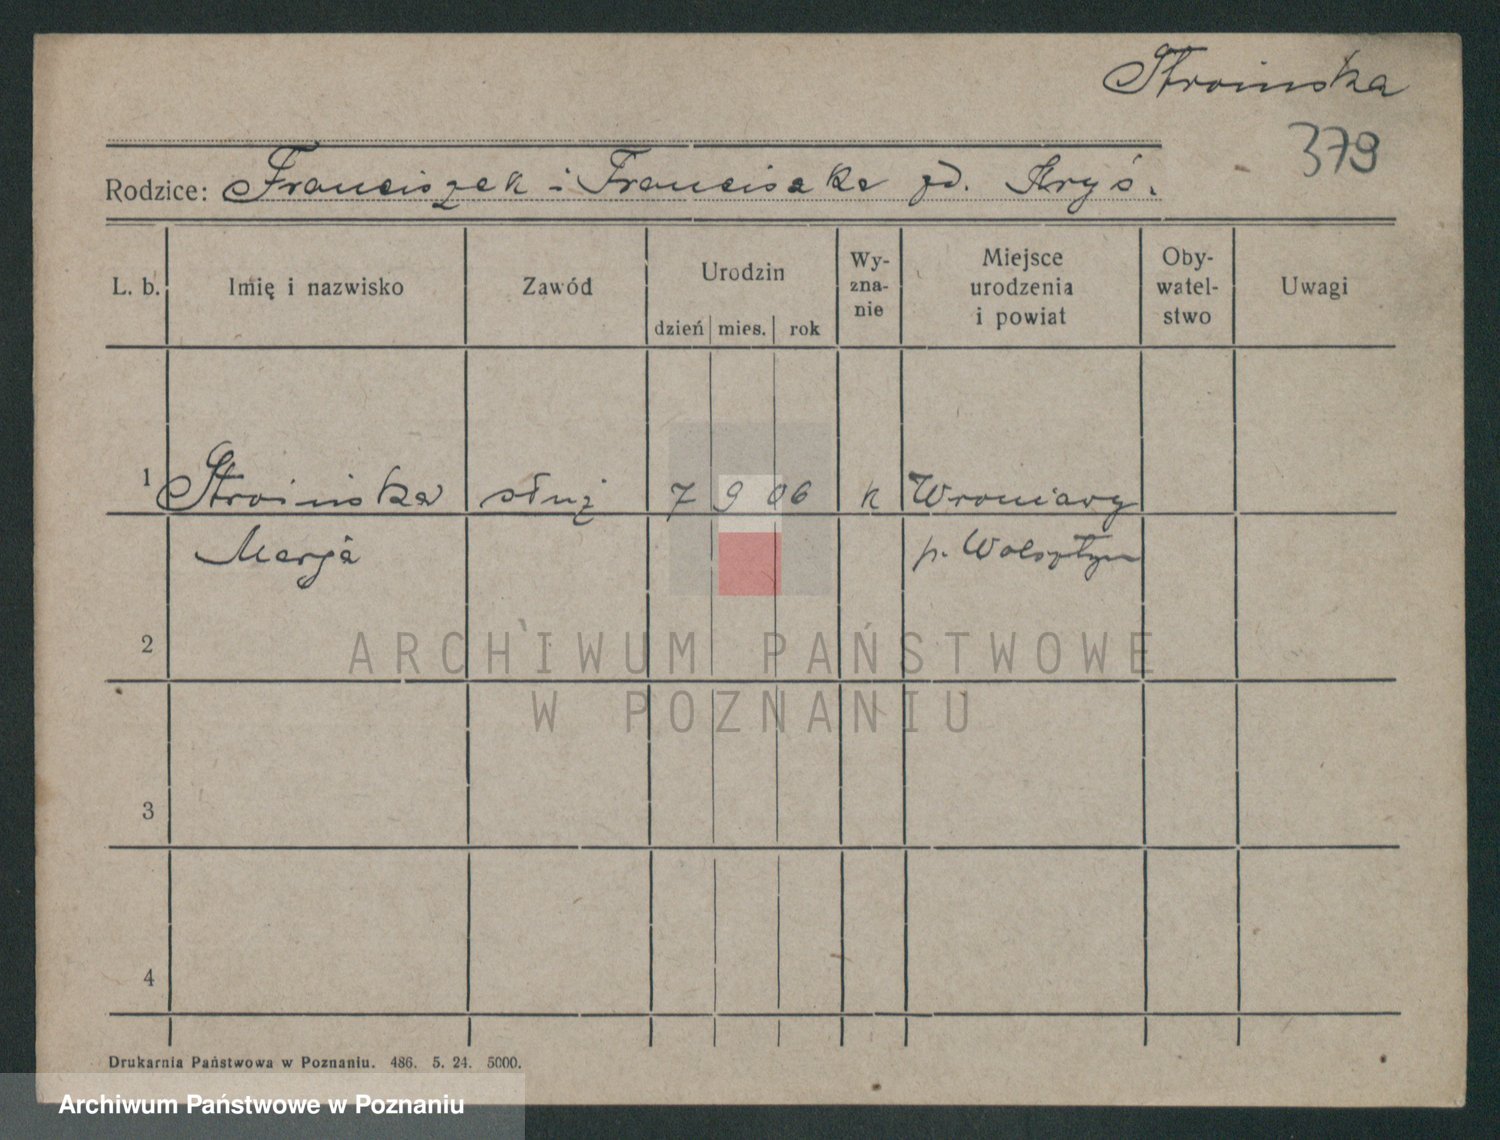 Stroinska
379
Rodzice: Franciszek i Franciszka zd. Kryś.
L. b. Imię i nazwisko Zawód Urodzin dzień mies. rok Wy-zna-nie Miejsce urodzenia i powiat Oby-watel-stwo Uwagi
1 Stroinska służ 7 9 06 k Wroniawy
Marja p. Wolsztyn
2
3
4
ARCHIWUM PAŃSTWOWE
W POZNANIU
Drukarnia Państwowa w Poznaniu. 486. 5. 24. 5000.
Archiwum Państwowe w Poznaniu